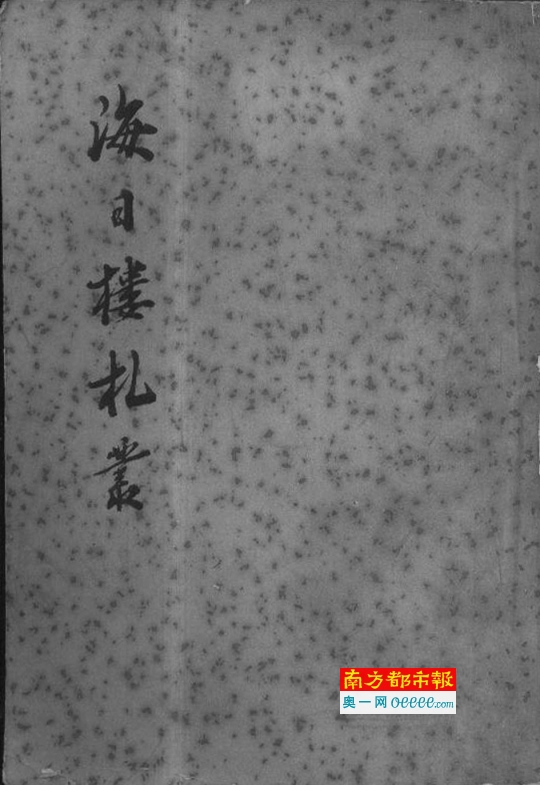 海日樓札叢
南方都市報
奥一网 oeeee.com